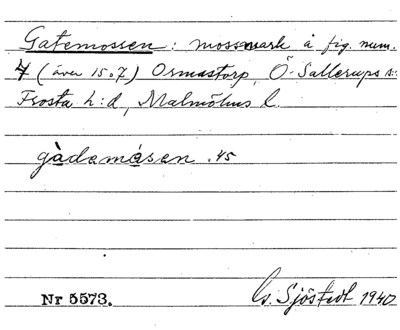 Gatemossen : mossmark å fig. num.
4 (även 15.07) Ormastorp, Ö. Sallerups s:n
Frosta h:d, Malmöhus l.
gàdamåsan . 45
Nr 5573. G. Sjöstedt 1940